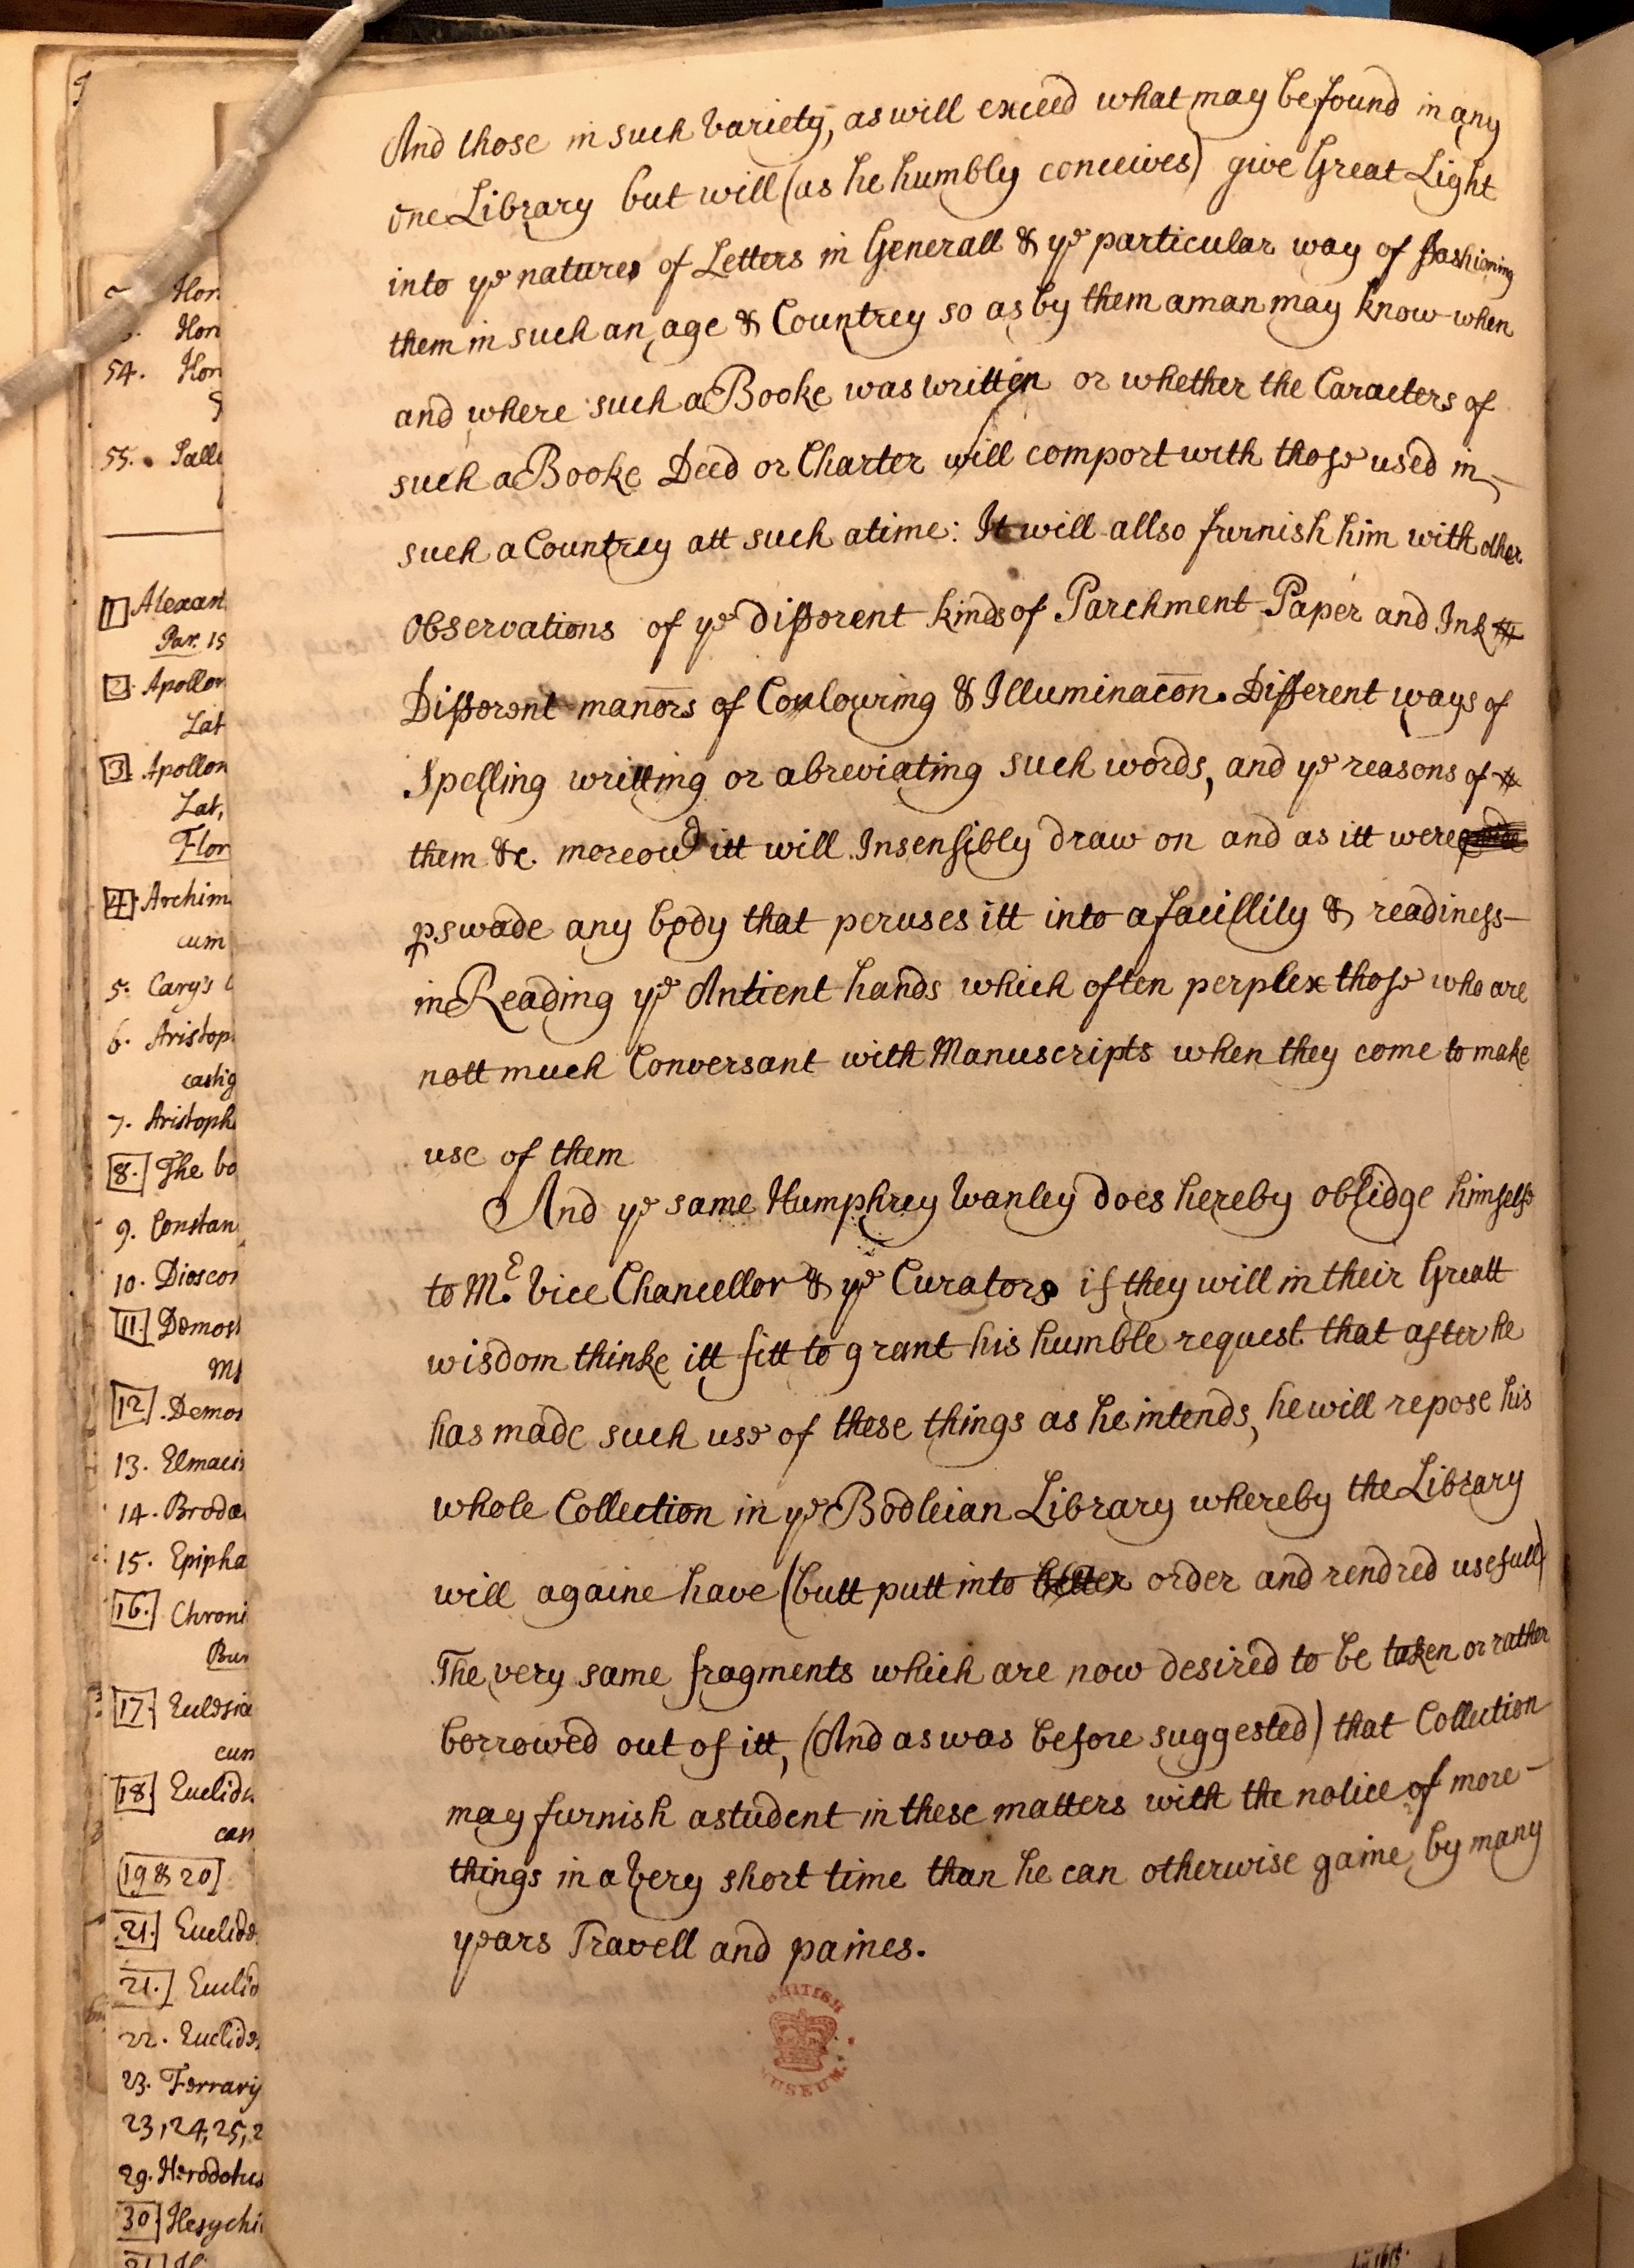 And those in such Variety, as will exceed what may be found in any
one Library but will (as he humbly conceives) give Great Light
into yᵉ natures of Letters in Generall & yᵉ particular way of ffashioning
them in such an age & Countrey so as by them a man may know when
and where such a Booke was written or whether the Caracters of
such a Booke Deed or Charter will comport with those used in
such a Countrey att such a time: It will allso furnish him with other
Observations of yᵉ different kinds of Parchment Paper and Ink
Different man̄ors of Coulouring & Illuminac̄on. Different ways of
Spelling writting or abreviating such words, and yᵉ reasons of
them &c. moreov͛ itt will Insensibly draw on and as itt were
ꝑswade any body that peruses itt into a facillity & readiness
in Reading yᵉ Antient hands which often perplex those who are
nott much Conversant with Manuscripts when they come to make
use of them
And yᵉ same Humphrey Wanley does hereby oblidge himselfe
to Mʳ. Vice Chancellor & yᵉ Curators if they will in their Greatt
wisdom thinke itt fitt to grant his humble request that after he
has made such use of these things as he intends, he will repose his
whole Collection in yᵉ Bodleian Library whereby the Library
will againe have (butt putt into better order and rendred usefull)
The very same fragments which are now desired to be taken or rather
borrowed out of itt, (And as was before suggested) that Collection
may furnish a student in these matters with the notice of more
things in a Very short time than he can otherwise gaine by many
years Travell and paines.
BRITISH
MUSEUM
Hon
Hon
54. Hon
55. Sall
1 Alexan
Par. 15
2. Apollon
Lat
3 Apollon
Lat,
Flor
4. Archim
cum
5. Cary's
6. Aristop
castig
7. Aristoph
8. The bo
9. Constan
10. Dioscor
11. Demos
MS
12. Demos
13. Elmacin
14. Brodæ
15. Epipha
16. Chroni
Bur
17. Euclid
cum
18. Euclid
cas
19 & 20
21. Euclid
21. Euclid
22. Euclid
23. Ferrarij
23, 24, 25, 2
29. Herodotus
30 Hesychi